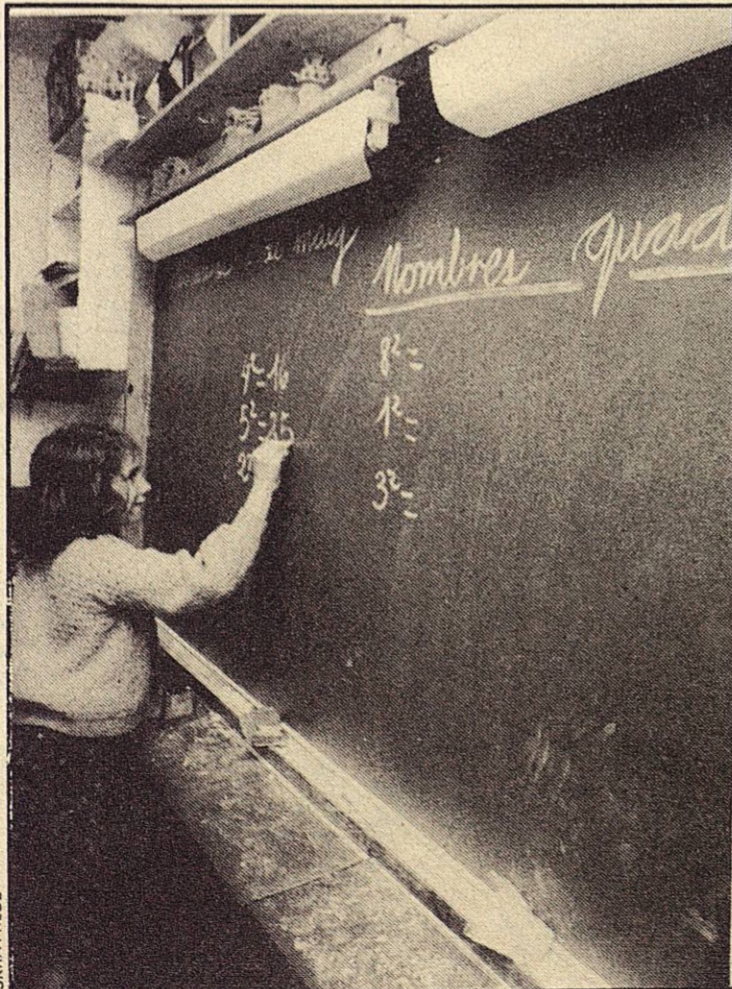 maig
Nombres quad
4²=16
5²=25
2
8²=
1²=
3²=